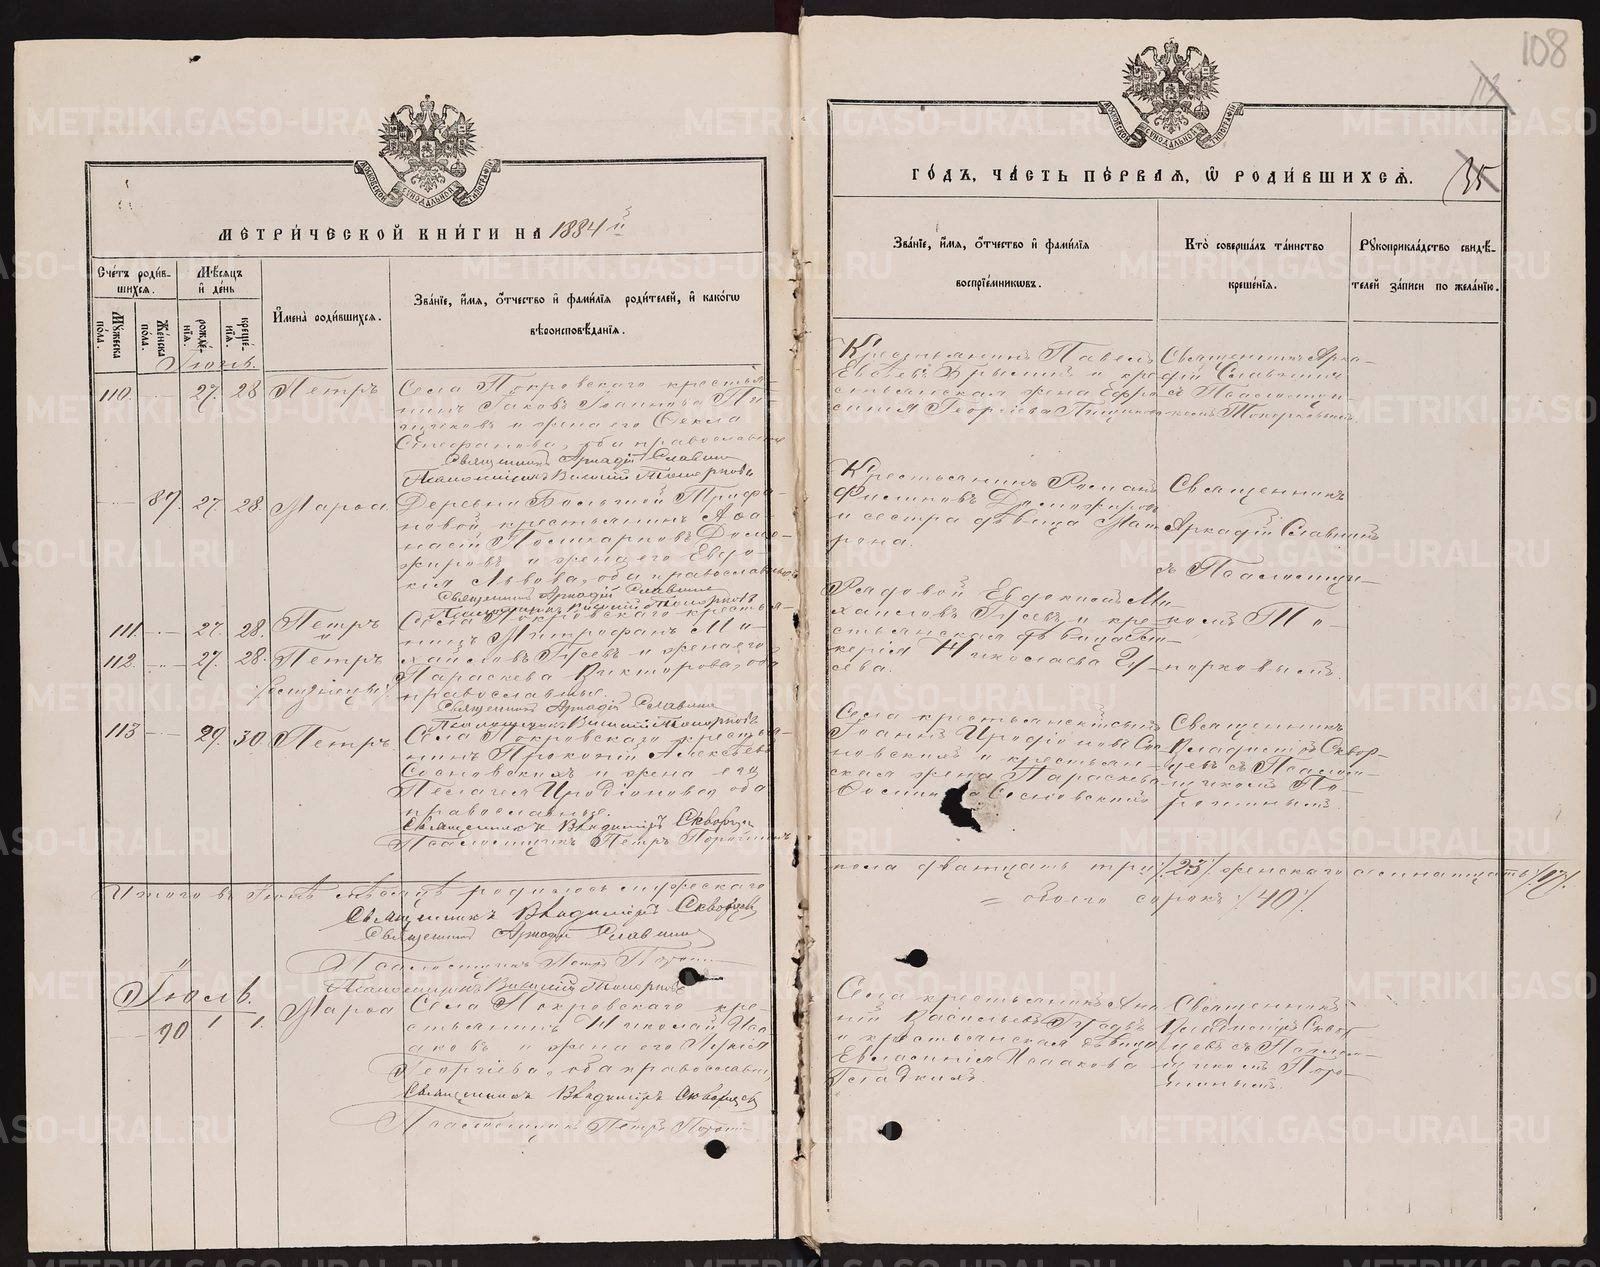 МЕТРИ́ЧЕСКОЙ КНИ́ГИ НА 1884 й
Сче́тъ роди́в-
шихся.
Мѣ́сяцъ
и де́нь
Му́жеска
по́ла.
Же́нска
по́ла.
рожде́-
нїя.
креще́-
нїя.
И҆мена̀ роди́вшихся.
Зва́нїе, и҆́мя, ѻ҆́тчество и фами́лїя роди́телей, и како́гѡ
вѣроисповѣ́данїя.
Іюнь.
110. 27. 28 Петръ
Села Покровскаго крестья-
нинъ Іаковъ Іоанновъ Пи-
щиковъ и жена его Ѳекла
Стефанова, оба православные
Священникъ Аркадій Славнинъ
Псаломщикъ Василій Топорковъ
87. 27. 28. Марѳа.
Деревни Большой Трифо-
новой крестьянинъ Аѳа
насій Поликарповъ Домо-
жировъ и жена его Евдо-
кія Львова, оба православные
Священникъ Аркадій Славнинъ
Псаломщикъ Василій Топорковъ
111. 27. 28. Петръ
и
112. 27. 28. Петръ
Села Покровскаго крестья-
нинъ Митрофанъ Ми-
хайловъ Гусевъ и жена его
Параскева Викторова, оба
православные.
Священникъ Аркадій Славнинъ
Псаломщикъ Василій Топорковъ
113 29. 30. Петръ.
Села Покровскаго крестья-
нинъ Прокопій Алексѣевъ
Сосновскихъ и жена его
Пелагея Иродіонова оба
православные.
Священникъ Владиміръ Скворцевъ
Псаломщикъ Петръ Порошинъ
Итого въ Іюнѣ мѣсяцѣ родилось мужескаго
Священникъ Владиміръ Скворцевъ
Священникъ Аркадій Славнинъ
Псаломщикъ Петръ
Псаломщикъ Василій Топорковъ
Іюль.
90 1 1. Марѳа
Села Покровскаго кре-
стьянинъ Николай Иса
аковъ и жена его
Георгіева, оба православные,
Священникъ Владиміръ Скворцевъ
Псаломщикъ Петръ
108
35
ГО́ДЪ, ЧА́СТЬ ПЕ́РВАЯ, Ѽ РОДИ́ВШИХСЯ.
Зва́нїе, и҆́мя, ѻ҆́тчество и фами́лїя
воспрїе́мниковъ.
Кто̀ соверша́лъ та́инство
креще́нїя.
Рукоприкла́дство свидѣ́-
телей за́писи по жела́нїю.
Крестьянинъ Павелъ
и кре
стьянская жена Евфро
синія Георгіева Пищикова
Священникъ Арка-
дій Славнинъ
съ Псаломщи
комъ Топорковымъ
Крестьянинъ Романъ
Филиповъ Доможировъ
и сестра дѣвица Мат
рона.
Священникъ
Аркадій Славнинъ
съ Псаломщи-
комъ То-
порковымъ.
Рядовой Евдокимъ Ми-
хайловъ Гусевъ и кре
стьянская дѣвица
Николаева Гу-
сева.
Села крестьянскій сынъ
Іоаннъ Иродіоновъ Сос
новскихъ и крестьян-
ская жена Параскева
Сосновскихъ
Священникъ
Владиміръ Сквор-
цевъ съ Псалом-
щикомъ По-
рошинымъ.
пола двадцать три /.23/. женскаго семнадцать /17/.
= обоего сорокъ /40/.
Села крестьянинъ
Васильевъ
и крестьянская дѣвица
Исаакова
Гладкихъ.
Священникъ
Владиміръ Сквор
цевъ съ Псалом-
щикомъ Поро-
шинымъ.
METRIKI.GASO-URAL.RU